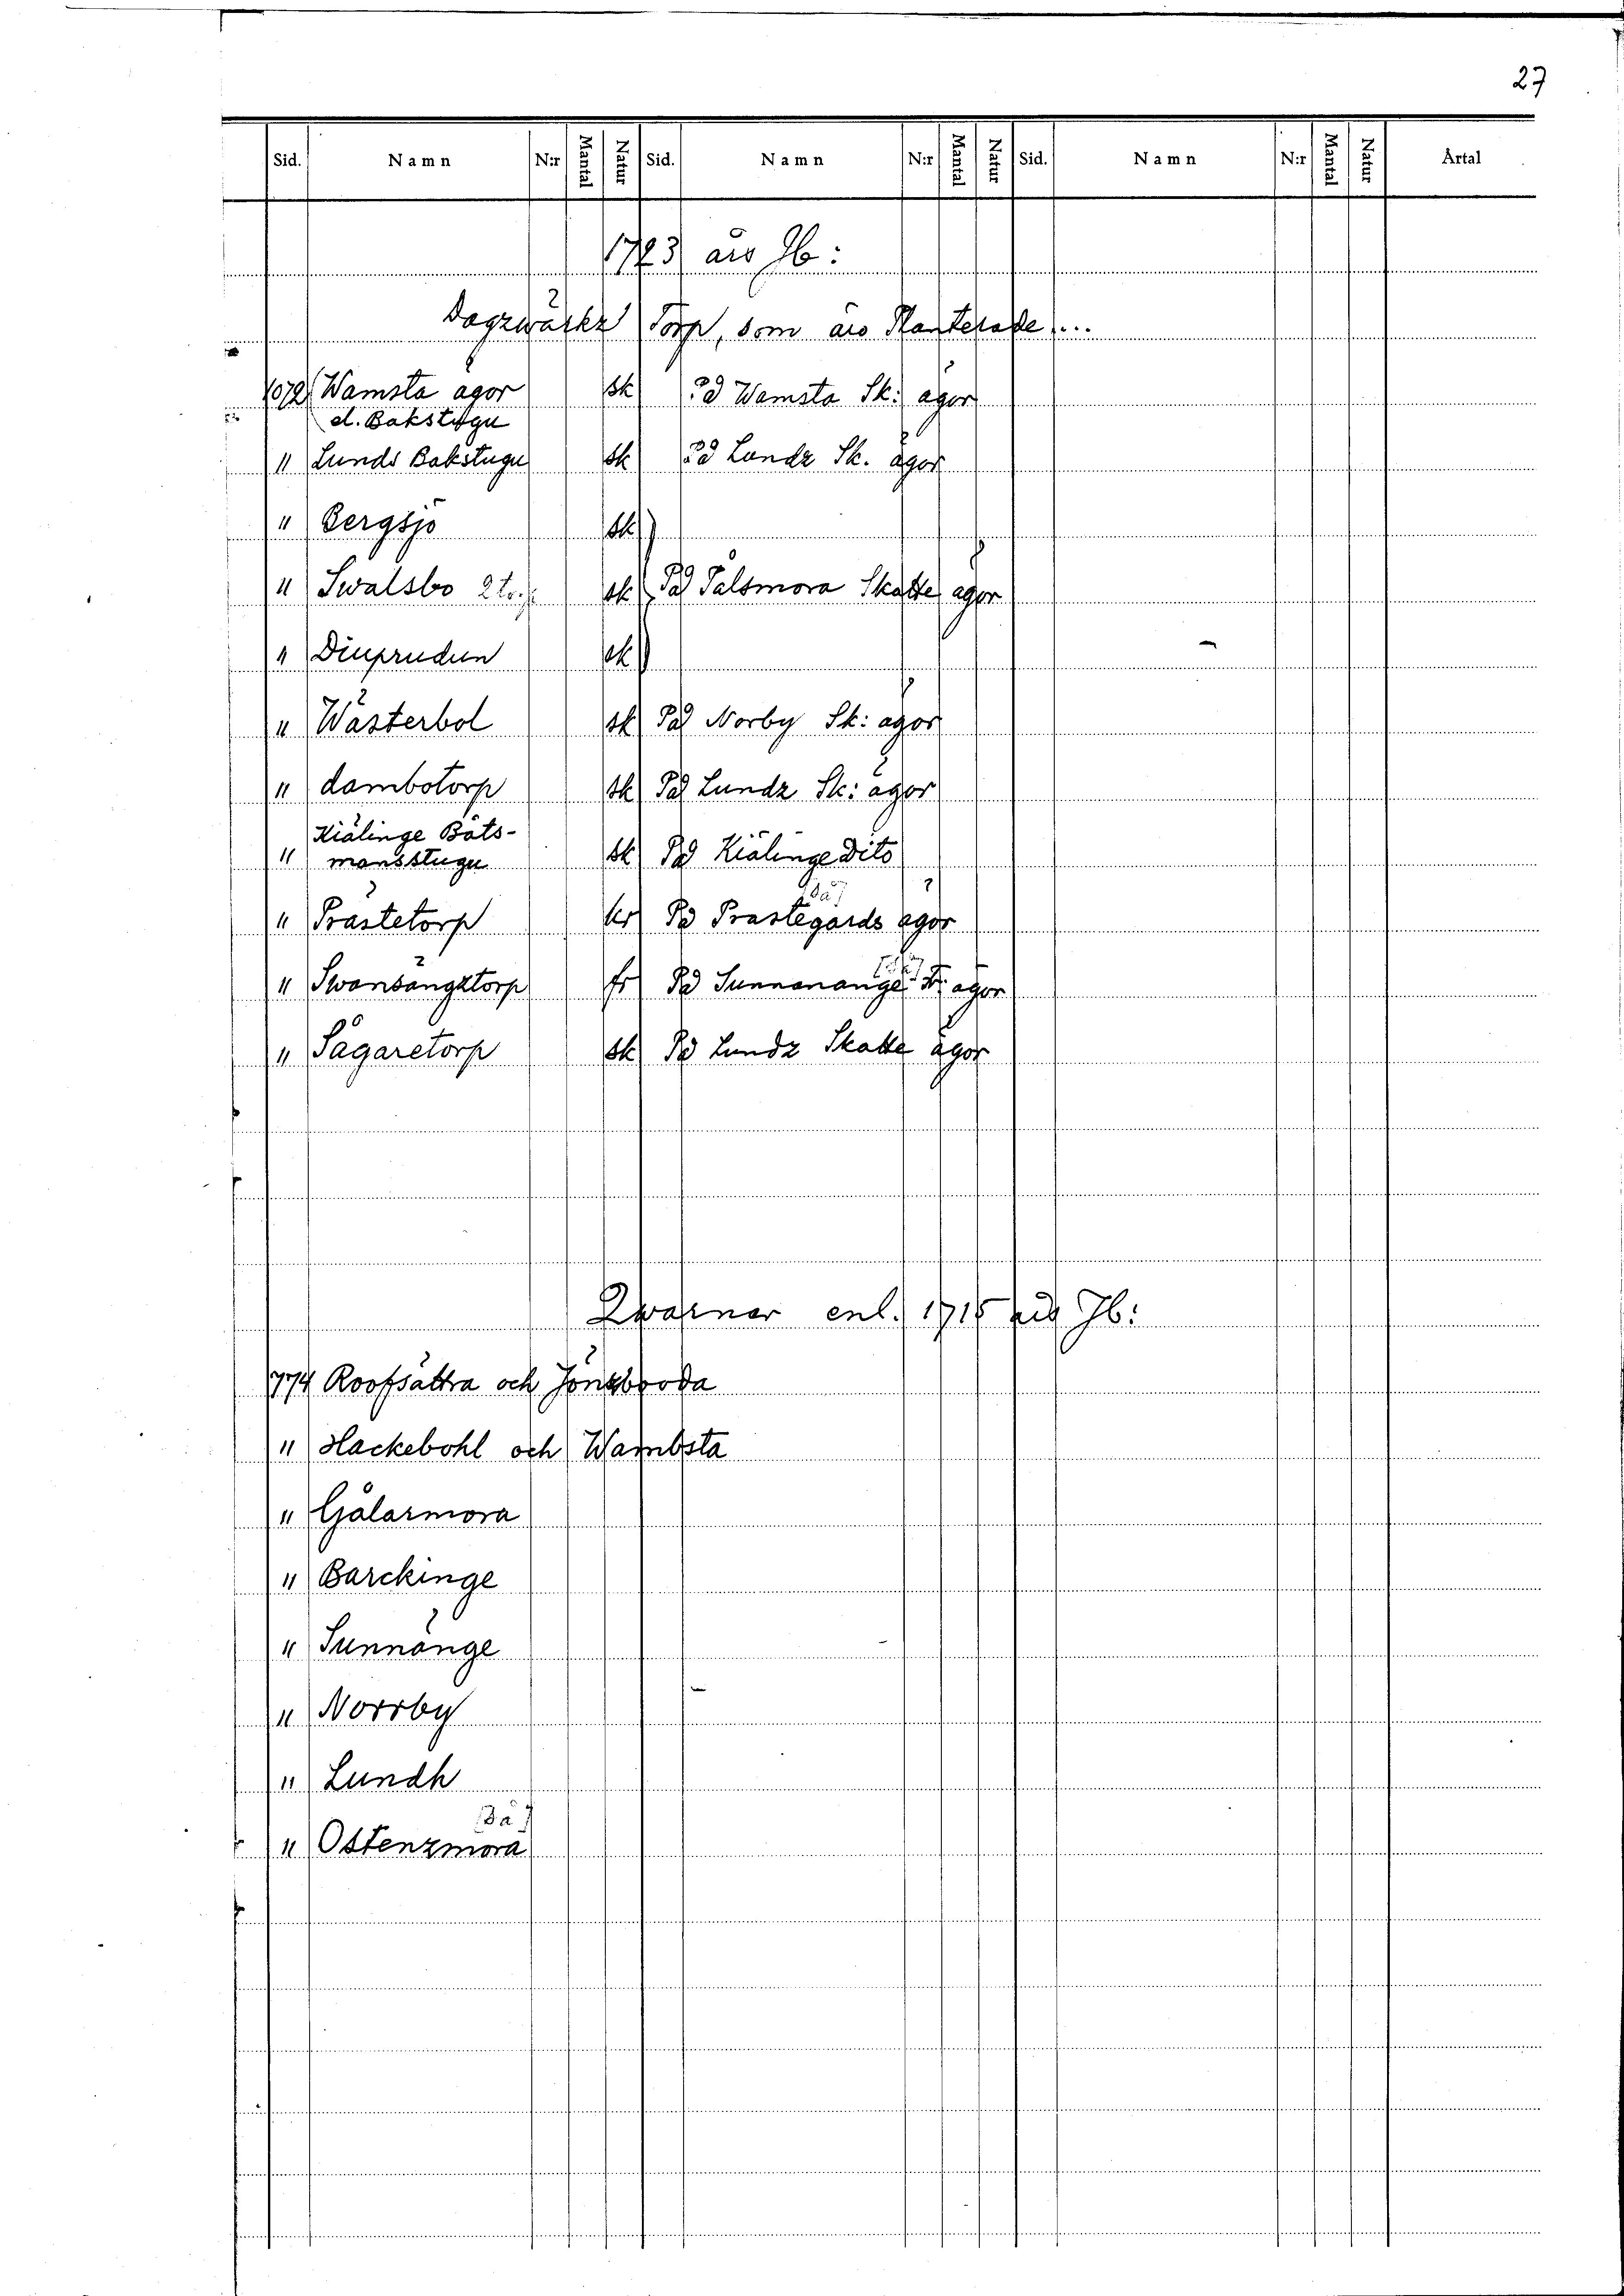 27
Sid. Namn N:r Mantal Natur Sid. Namn N:r Mantal Natur Sid. Namn N:r Mantal Natur Årtal
1723 års Jb:
Dagzwärkz Torp, som äro Planterade ...
1072 Wamsta ägor sk På Wamsta Sk: ägor
d. Bakstugu
" Lunds Bakstugu sk På Lundz Sk. ägor
" Bergsjö sk
" Swalsbo 2 torp sk På Pålsmora Skatte ägor
" Diuprudun sk
" Wästerbol sk På Norby Sk: ägor
" dambotorp sk På Lundz Sk: ägor
Kiälinge Båts-
" mansstugu sk På Kiälinge Dito
[så]
" Prästetorp kr På Prastegårds ägor
" Swansängztorp fr På Sunnanänge fr: ägor
" Sågaretorp sk På Lundz Skatte ägor
Qwarnar enl. 1715 års Jb:
774 Roofsättra och Jönsbooda
" Hackebohl och Wambsta
" Gålarmora
" Barckinge
" Sunnänge
" Norrby
" Lundh
[så]
" Ostenzmora